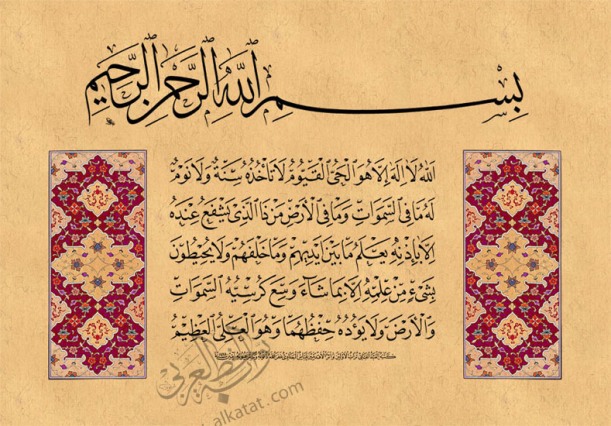 بِسْمِ اللَّهِ الرَّحْمَٰنِ الرَّحِيمِ
اللَّهُ لَا إِلَٰهَ إِلَّا هُوَ الْحَيُّ الْقَيُّومُ لَا تَأْخُذُهُ سِنَةٌ وَلَا نَوْمٌ
لَهُ مَا فِي السَّمٰوَاتِ وَمَا فِي الْأَرْضِ مَنْ ذَا الَّذِي يَشْفَعُ عِنْدَهُ
إِلَّا بِإِذْنِهِ يَعْلَمُ مَا بَيْنَ أَيْدِيهِمْ وَمَا خَلْفَهُمْ وَلَا يُحِيطُونَ
بِشَيْءٍ مِنْ عِلْمِهِ إِلَّا بِمَا شَاءَ وَسِعَ كُرْسِيُّهُ السَّمٰوَاتِ
وَالْأَرْضَ وَلَا يَؤُدُهُ حِفْظُهُمَا وَهُوَ الْعَلِيُّ الْعَظِيمُ
alkatat.com